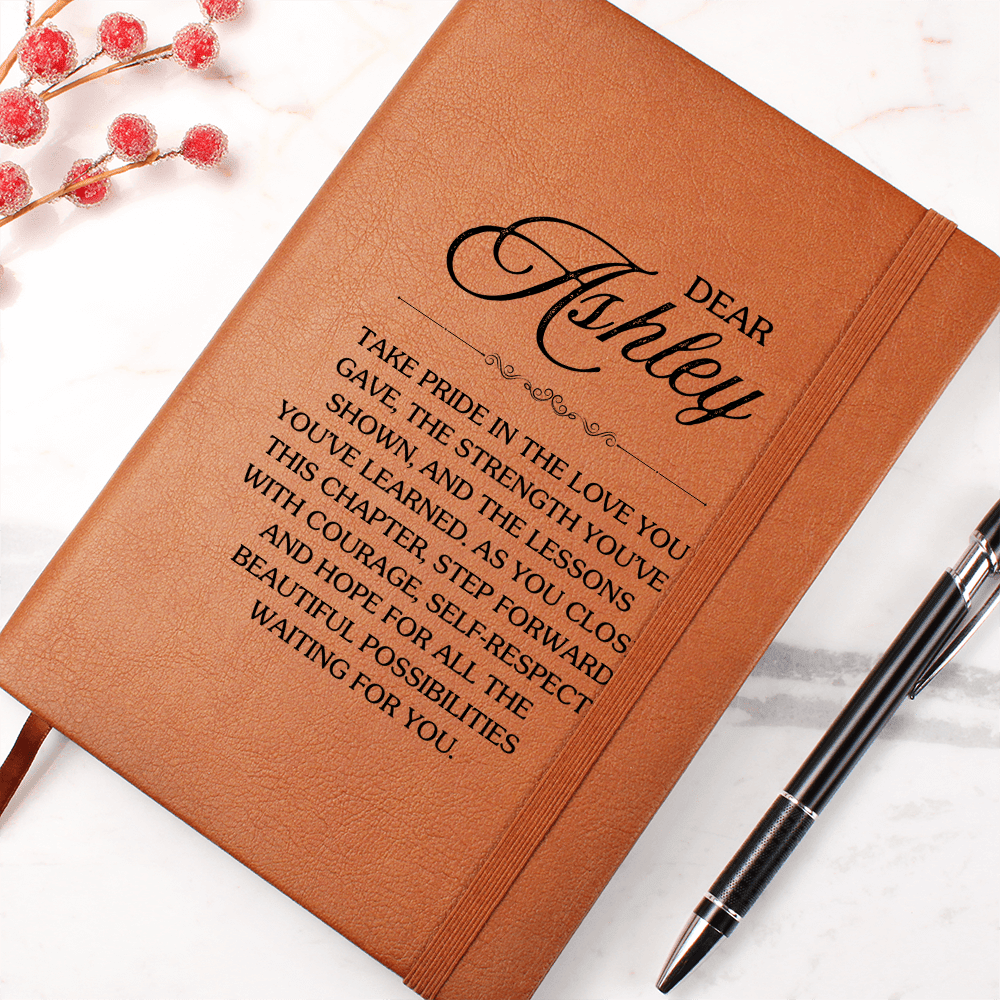 DEAR
Ashley
TAKE PRIDE IN THE LOVE YOU
GAVE, THE STRENGTH YOU'VE
SHOWN, AND THE LESSONS
YOU'VE LEARNED. AS YOU CLOS
THIS CHAPTER, STEP FORWARD
WITH COURAGE, SELF-RESPECT
AND HOPE FOR ALL THE
BEAUTIFUL POSSIBILITIES
WAITING FOR YOU.